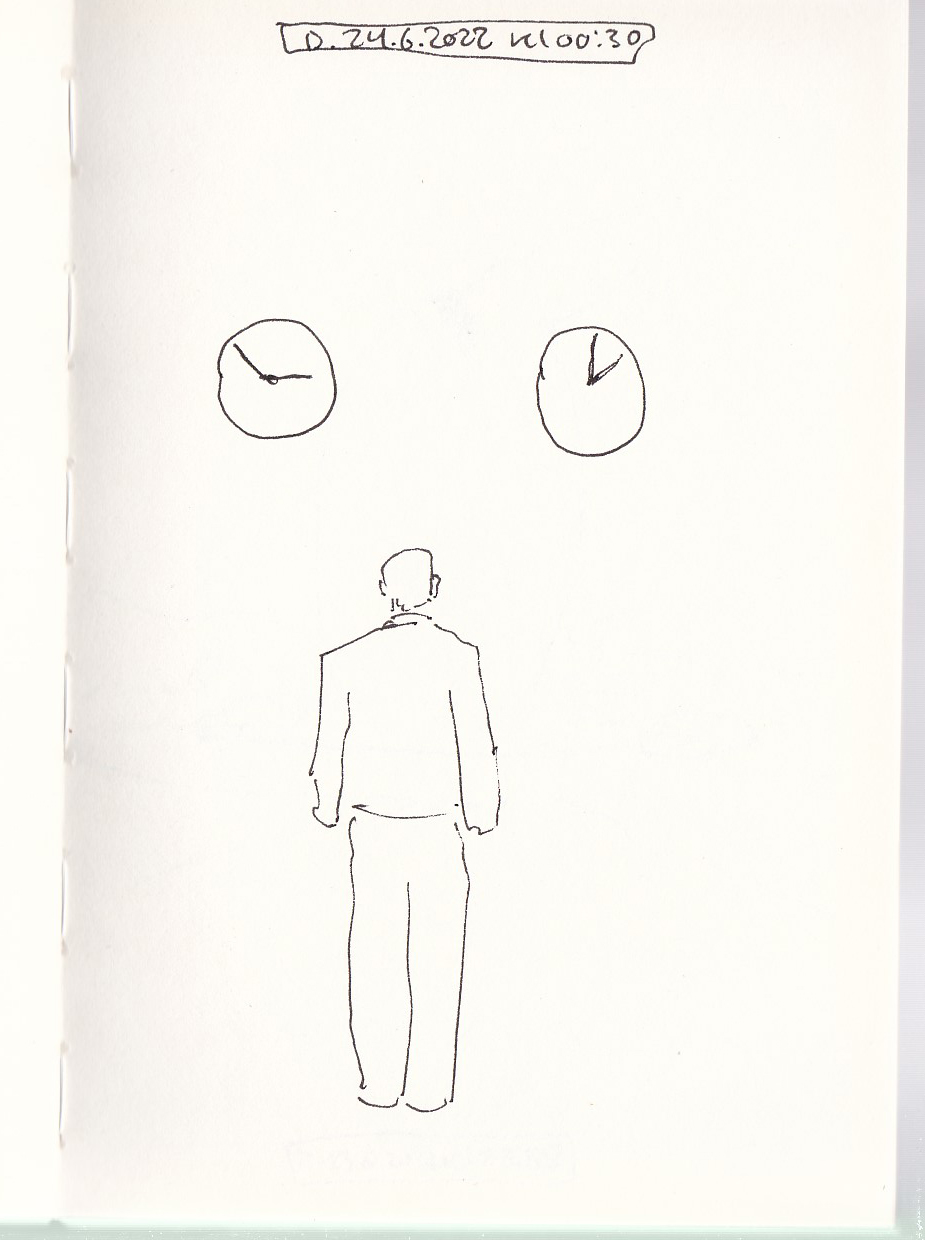 D. 24.6.2022 kl 00:30